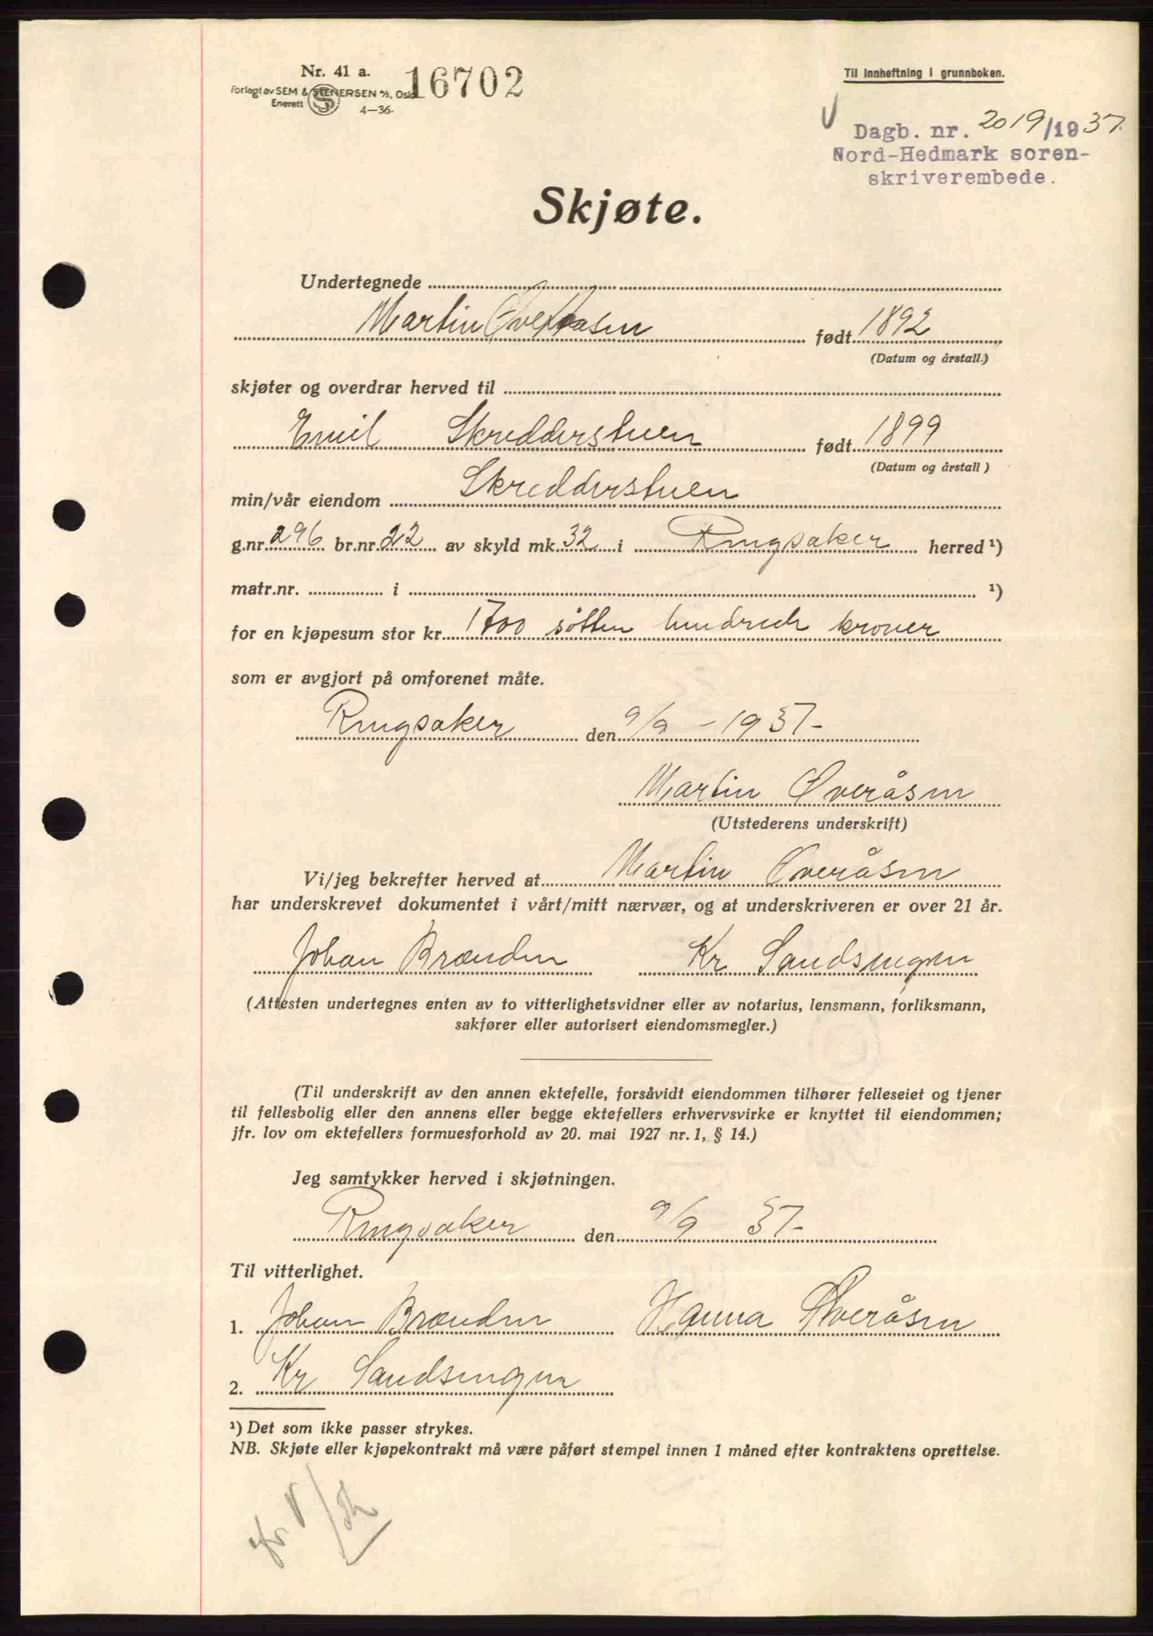 Nr. 41 a.
16702
Forlagt av SEM & STENERSEN A/S, Oslo
Enerett
4—36.
Til innheftning i grunnboken.
Dagb. nr. 2019/1937.
Nord-Hedmark soren-
skriverembede.
Skjøte.
Undertegnede
Martin Øveråsen født 1892
(Datum og årstall.)
skjøter og overdrar herved til
Emil Skredderstuen født 1899
(Datum og årstall)
min/vår eiendom Skredderstuen
g.nr. 296 br.nr. 22 av skyld mk. 32 i Ringsaker herred ¹)
matr.nr. i ¹)
for en kjøpesum stor kr. 1700 søtten hundrede kroner
som er avgjort på omforenet måte.
Ringsaker den 9/9 - 1937-
Martin Øveråsen
(Utstederens underskrift)
Vi/jeg bekrefter herved at Martin Øveråsen
har underskrevet dokumentet i vårt/mitt nærvær, og at underskriveren er over 21 år.
Johan Brænden Kr Sandsengen
(Attesten undertegnes enten av to vitterlighetsvidner eller av notarius, lensmann, forliksmann,
sakfører eller autorisert eiendomsmegler.)
(Til underskrift av den annen ektefelle, forsåvidt eiendommen tilhører felleseiet og tjener
til fellesbolig eller den annens eller begge ektefellers erhvervsvirke er knyttet til eiendommen;
jfr. lov om ektefellers formuesforhold av 20. mai 1927 nr. 1, § 14.)
Jeg samtykker herved i skjøtningen.
Ringsaker den 9/9 37-
Til vitterlighet.
1. Johan Brænden Hanna Øveråsen
2. Kr Sandsengen
¹) Det som ikke passer strykes.
NB. Skjøte eller kjøpekontrakt må være påført stempel innen 1 måned efter kontraktens oprettelse.